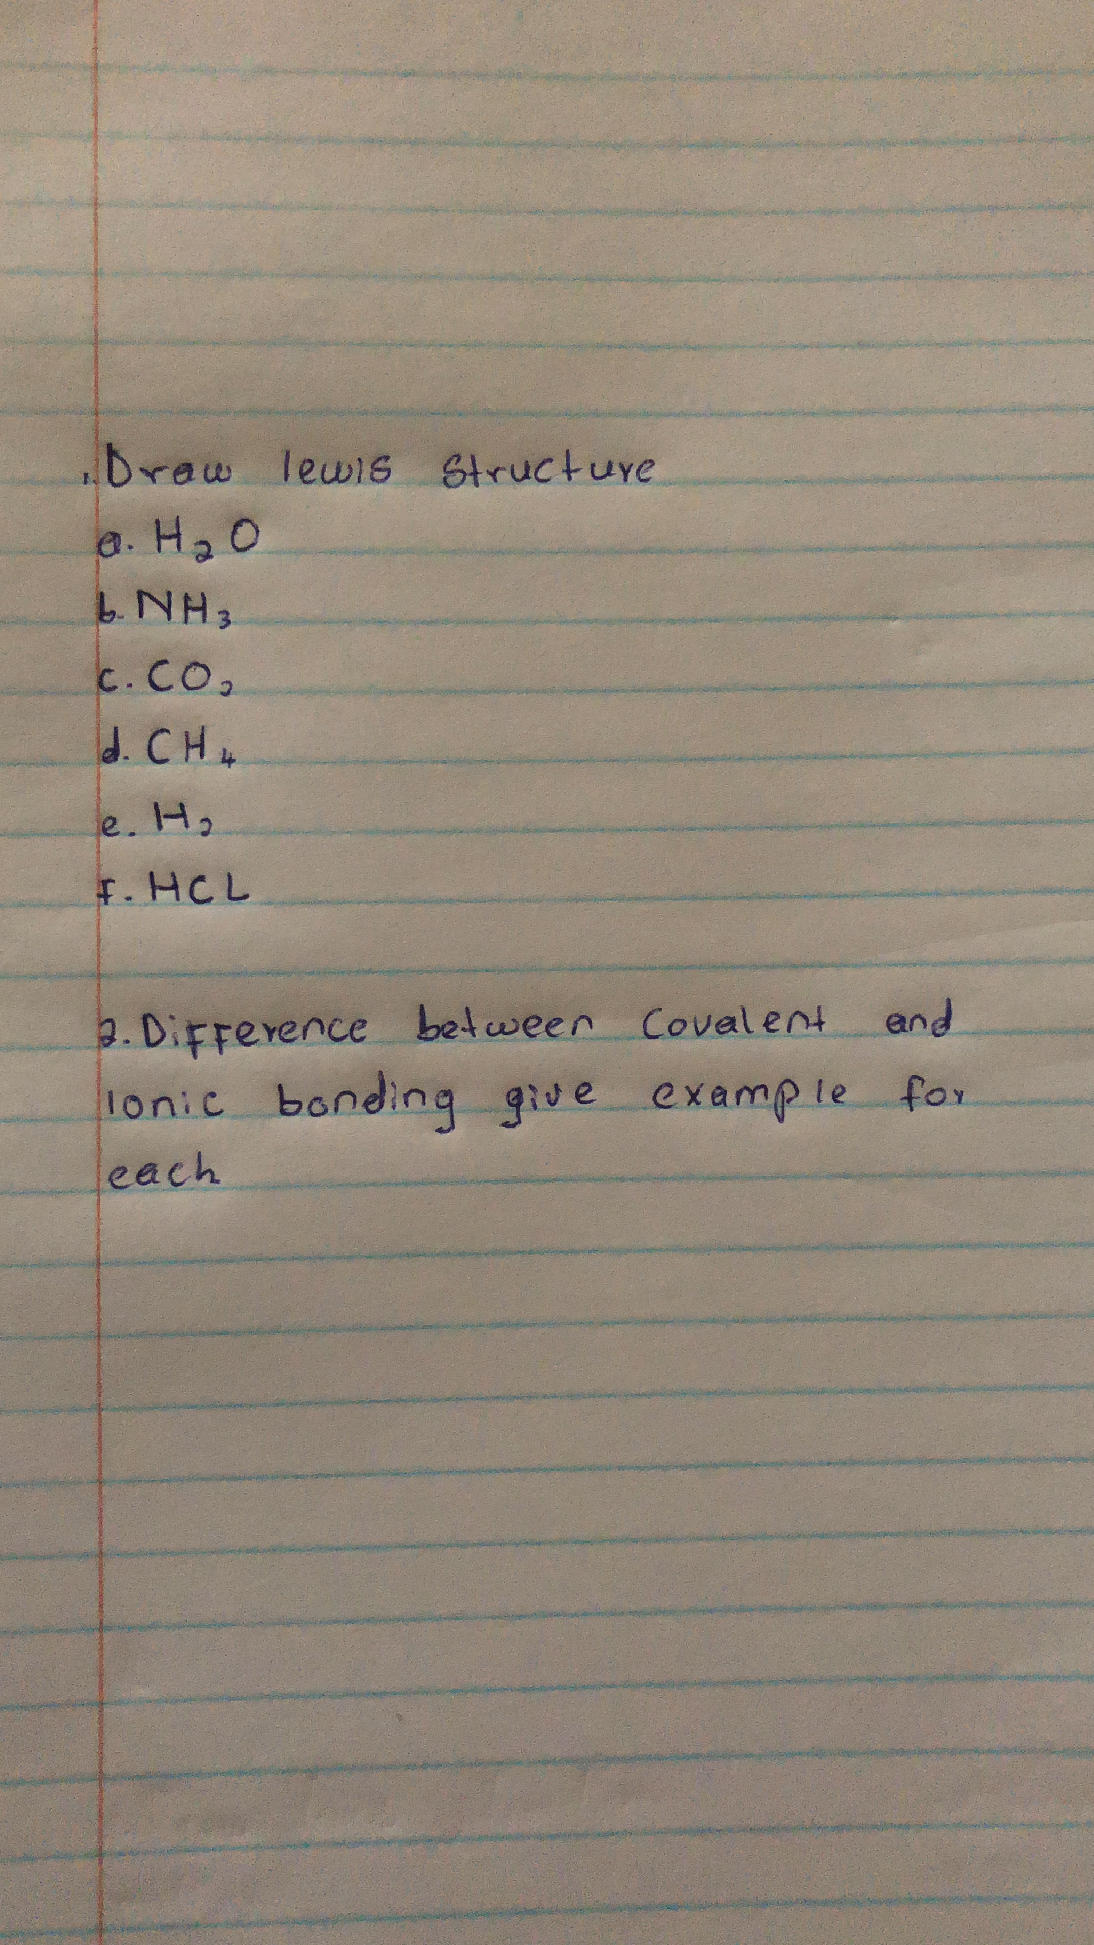 1. Draw lewis structure
a. H₂O
b. NH₃
c. CO₂
d. CH₄
e. H₂
f. HCL
2. Difference between Covalent and
Ionic bonding give example for
each